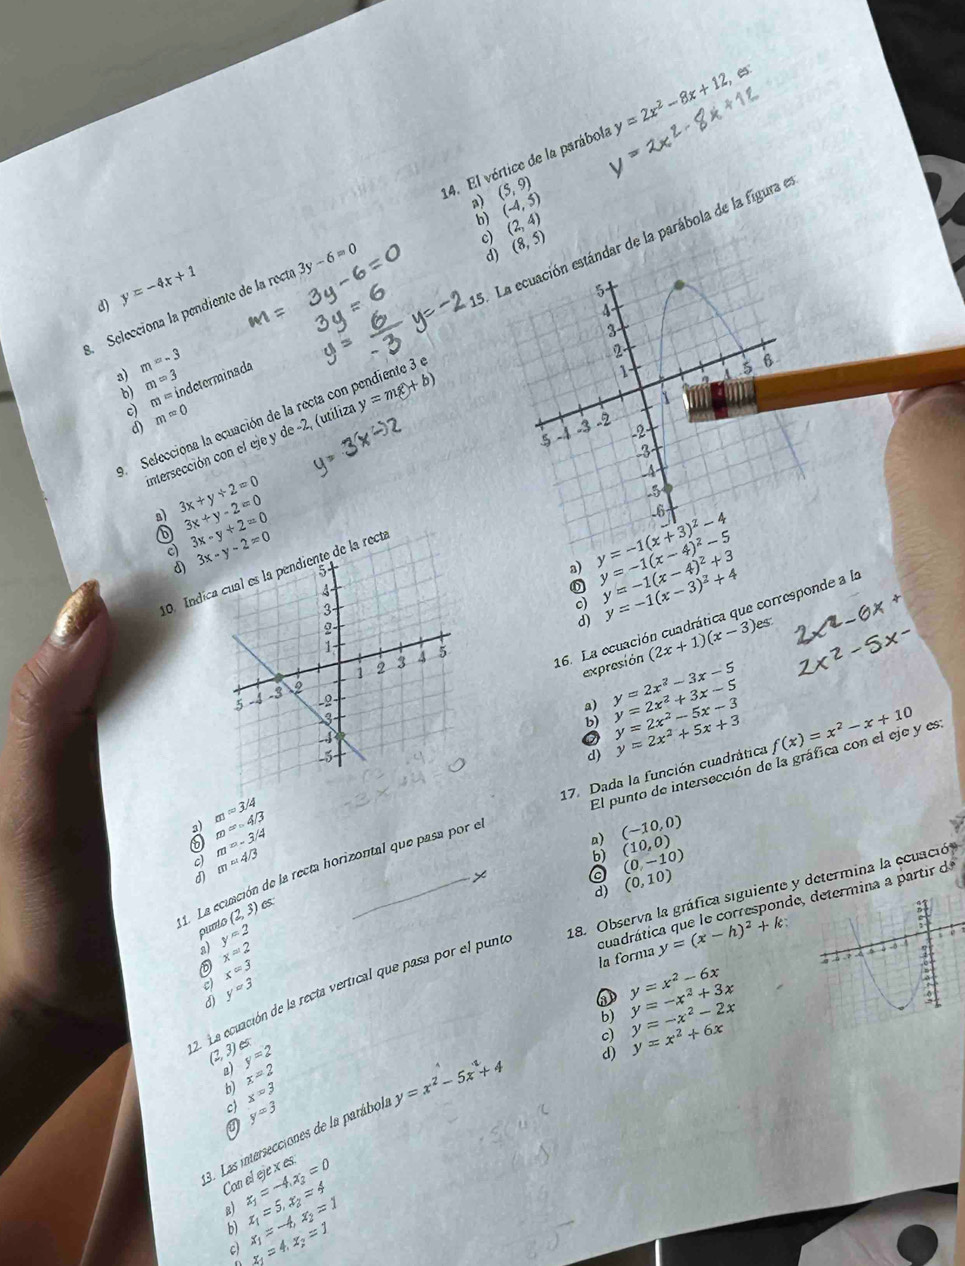 d) y = -4x + 1
8. Selecciona la pendiente de la recta 3y - 6 = 0
m =
3y - 6 = 0
3y = 6
y = 6/-3 y = -2
a) m = -3
b) m = 3
c) m = indeterminada
d) m = 0
9. Selecciona la ecuación de la recta con pendiente 3 e
intersección con el eje y de -2, (utiliza y = mx + b)
y = 3(x -)2
a) 3x + y + 2 = 0
b) 3x + y - 2 = 0
c) 3x - y + 2 = 0
d) 3x - y - 2 = 0
10. Indica cual es la pendiente de la recta
5
4
3
2
1
5 -4 -3 -2
1 2 3 4 5
-2
-3
-4
-5
a) m = 3/4
b) m = -4/3
c) m = -3/4
d) m = 4/3
11. La ecuación de la recta horizontal que pasa por el
punto (2, 3) es:
a) y = 2
b) x = 2
c) x = 3
d) y = 3
12. La ecuación de la recta vertical que pasa por el punto
(2, 3) es:
a) y = 2
b) x = 2
c) x = 3
d) y = 3
13. Las intersecciones de la parábola y = x² - 5x + 4
Con el eje x es:
a) x₁ = -4, x₂ = 0
b) x₁ = 5, x₂ = 4
c) x₁ = -4, x₂ = 1
x₁ = 4, x₂ = 1
14. El vértice de la parábola y = 2x² - 8x + 12, es:
y = 2x² - 8x + 12
a) (5, 9)
b) (-4, 5)
c) (2, 4)
d) (8, 5)
15. La ecuación estándar de la parábola de la figura es:
5
4
3
2
1
5 -4 -3 -2
1 5 6
-2
-3
-4
-5
-6
a) y = -1(x + 3)² - 4
b) y = -1(x - 4)² - 5
c) y = -1(x - 4)² + 3
d) y = -1(x - 3)² + 4
16. La ecuación cuadrática que corresponde a la
expresión (2x + 1)(x - 3) es:
2x² - 6x +
2x² - 5x -
a) y = 2x² - 3x - 5
b) y = 2x² + 3x - 5
y = 2x² - 5x - 3
d) y = 2x² + 5x + 3
17. Dada la función cuadrática f(x) = x² - x + 10
El punto de intersección de la gráfica con el eje y es:
a) (-10, 0)
b) (10, 0)
c) (0, -10)
d) (0, 10)
18. Observa la gráfica siguiente y determina la ecuació
cuadrática que le corresponde, determina a partir de
la forma y = (x - h)² + k:
a) y = x² - 6x
b) y = -x² + 3x
c) y = -x² - 2x
d) y = x² + 6x